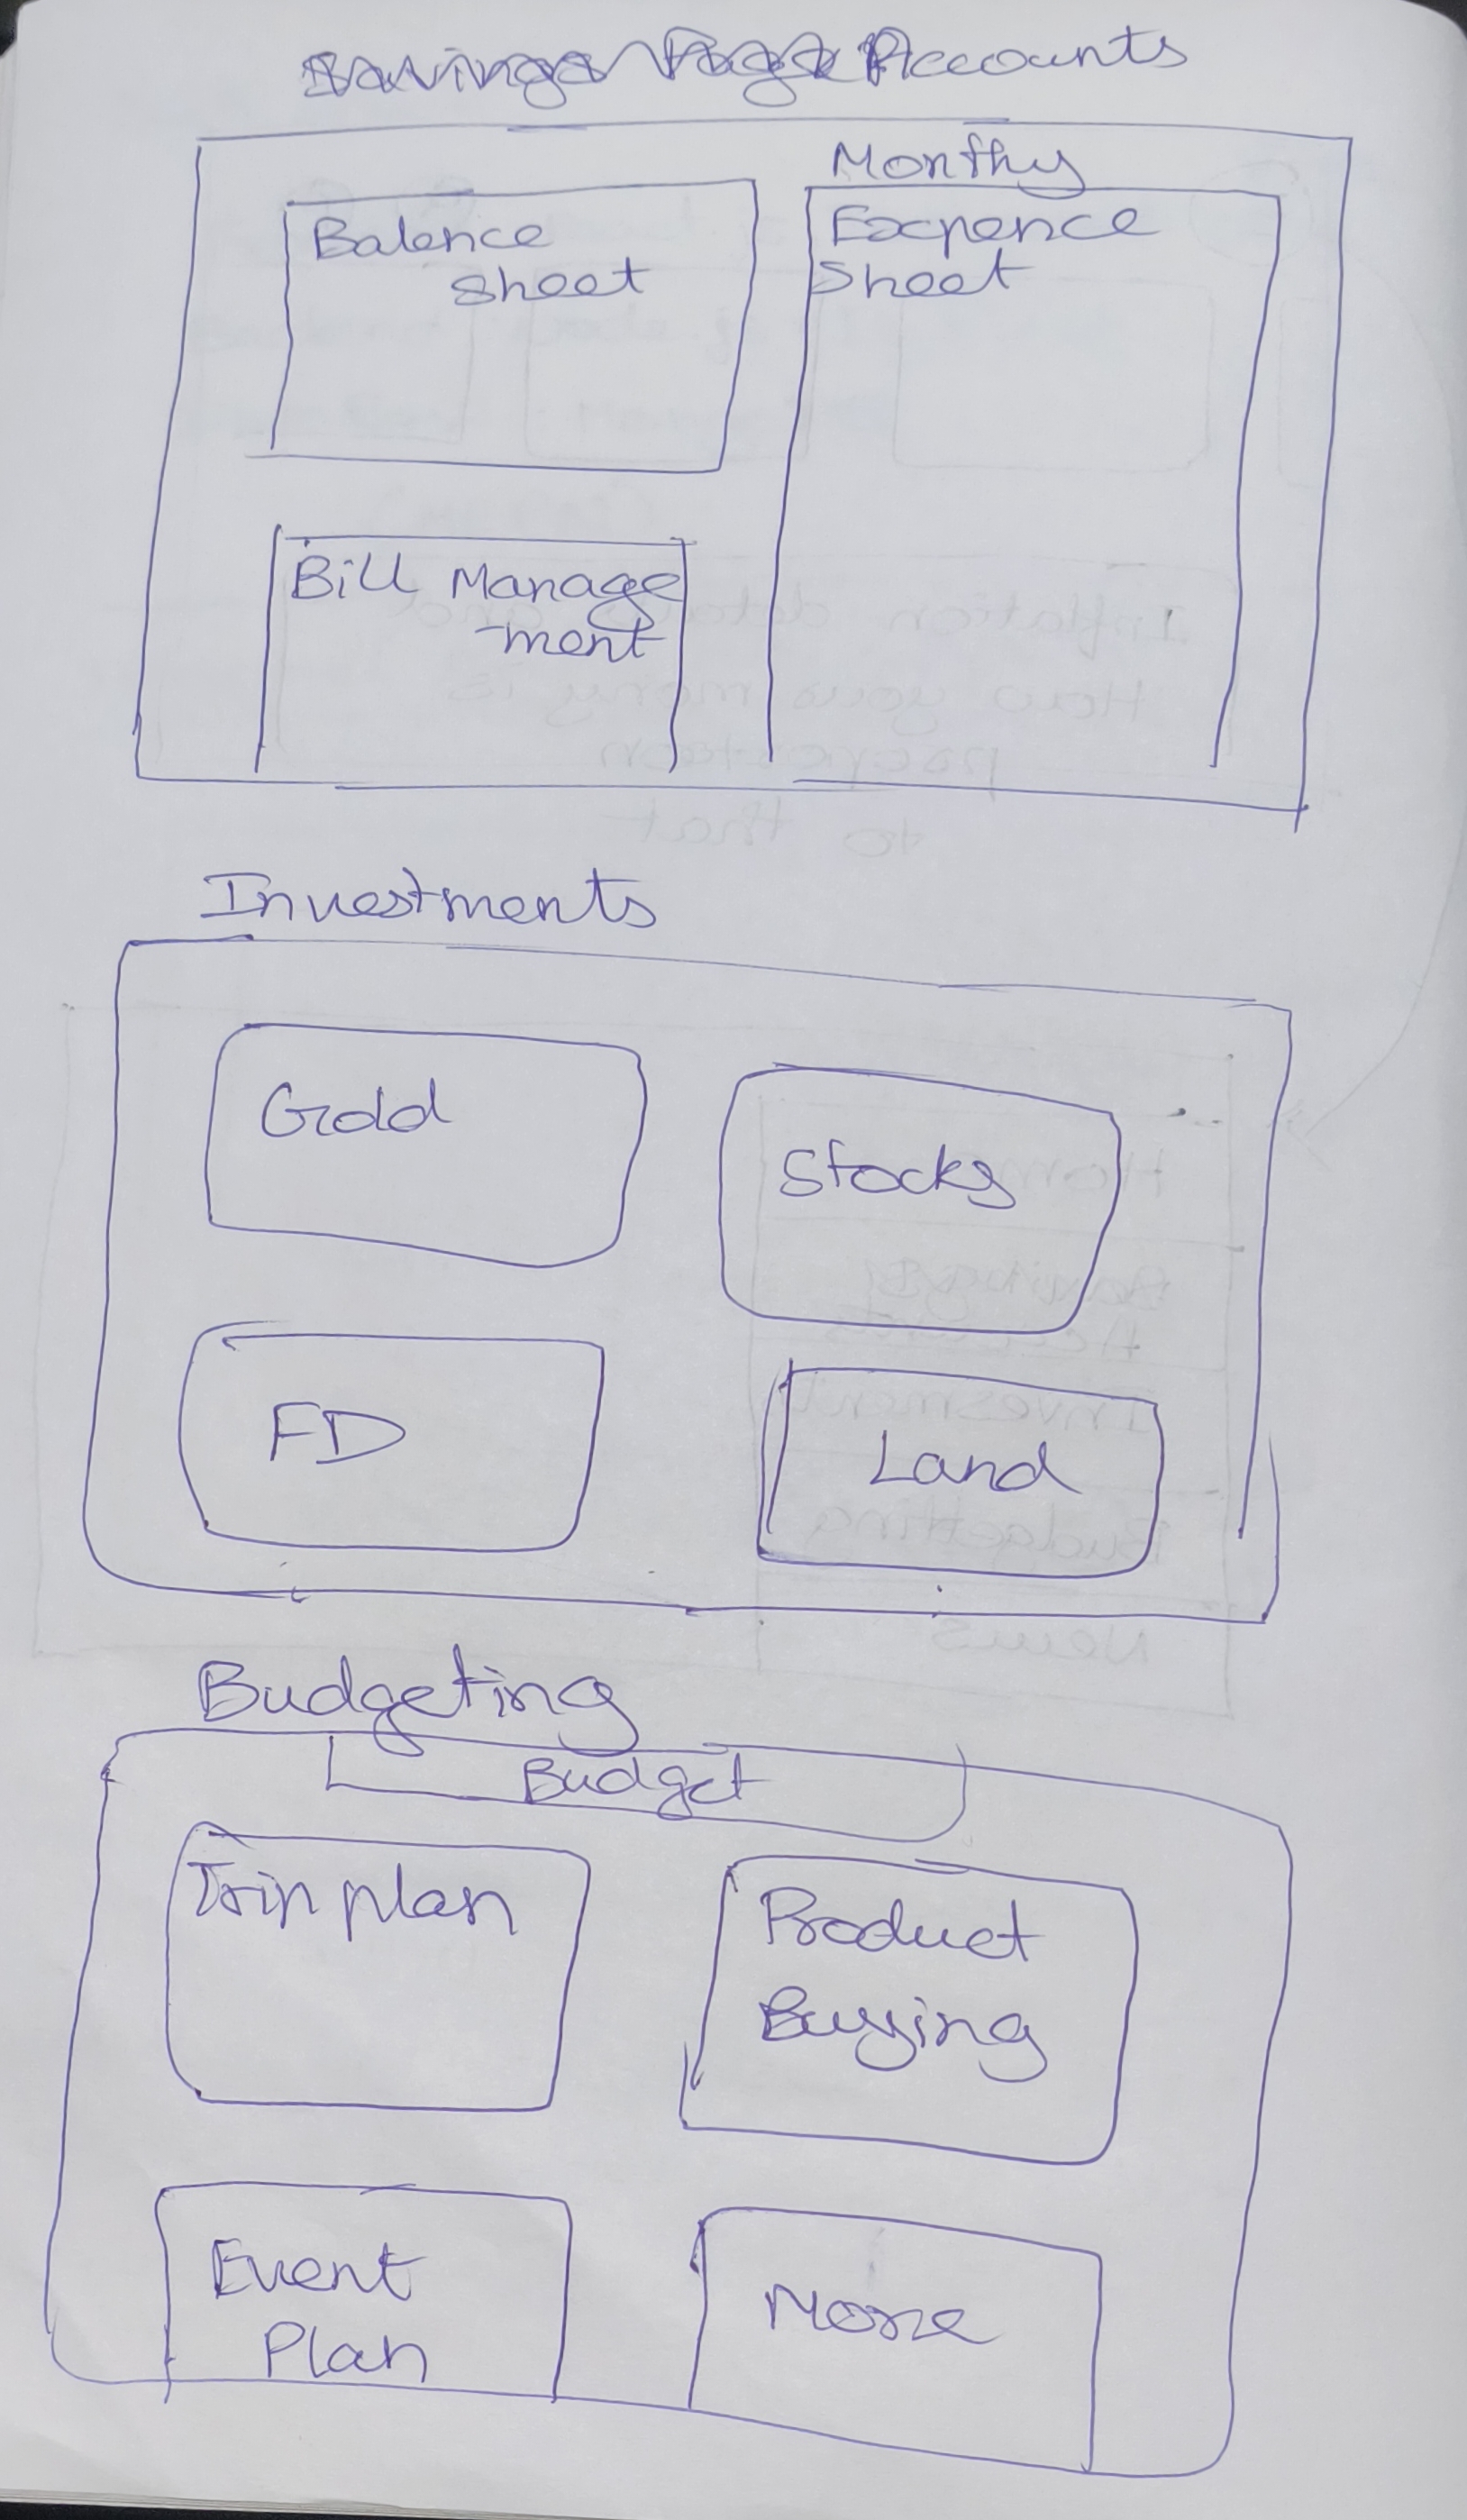 Accounts
Balence
sheet
Monthy
Expence
Sheet
Bill Manage
-ment
Investments
Gold
Stocks
FD
Land
Budgeting
Budget
Trip plan
Product
Buying
Event
Plan
More